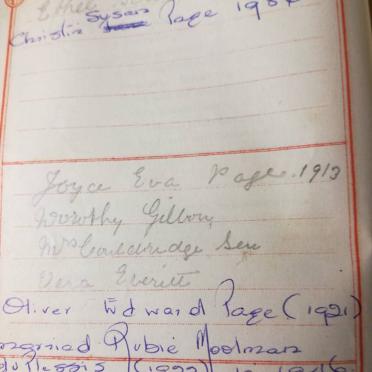 Ethel
Christin Susan Page 19
Joyce Eva Page. 1913
Dorothy Gibbons
Mrs Couldridge Sen
Vera Everitt
Oliver Edward Page (1921)
married Rubie Moolman
Du Plessis (1922) in 1946